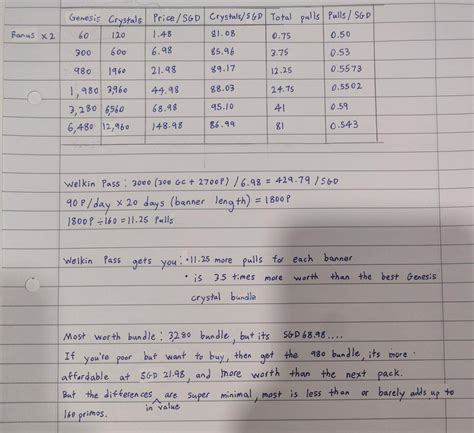 Genesis Crystals Price/SGD Crystals/SGD Total pulls Pulls/SGD
Bonus x2 60 120 1.48 81.08 0.75 0.50
300 600 6.98 85.96 3.75 0.53
980 1960 21.98 89.17 12.25 0.5573
1,980 3,960 44.98 88.03 24.75 0.5502
3,280 6,560 68.98 95.10 41 0.59
6,480 12,960 148.98 86.99 81 0.543
Welkin Pass: 3000 (300 GC + 2700P) / 6.98 = 429.79 / SGD
90P/day x 20 days (banner length) = 1800P
1800P ÷ 160 = 11.25 Pulls
Welkin Pass gets you: • 11.25 more pulls for each banner
• is 3.5 times more worth than the best Genesis
crystal bundle
Most worth bundle: 3280 bundle, but its SGD 68.98....
If you're poor but want to buy, then get the 980 bundle, its more
affordable at SGD 21.98, and more worth than the next pack.
But the differences in value are super minimal, most is less than or barely adds up to
160 primos.